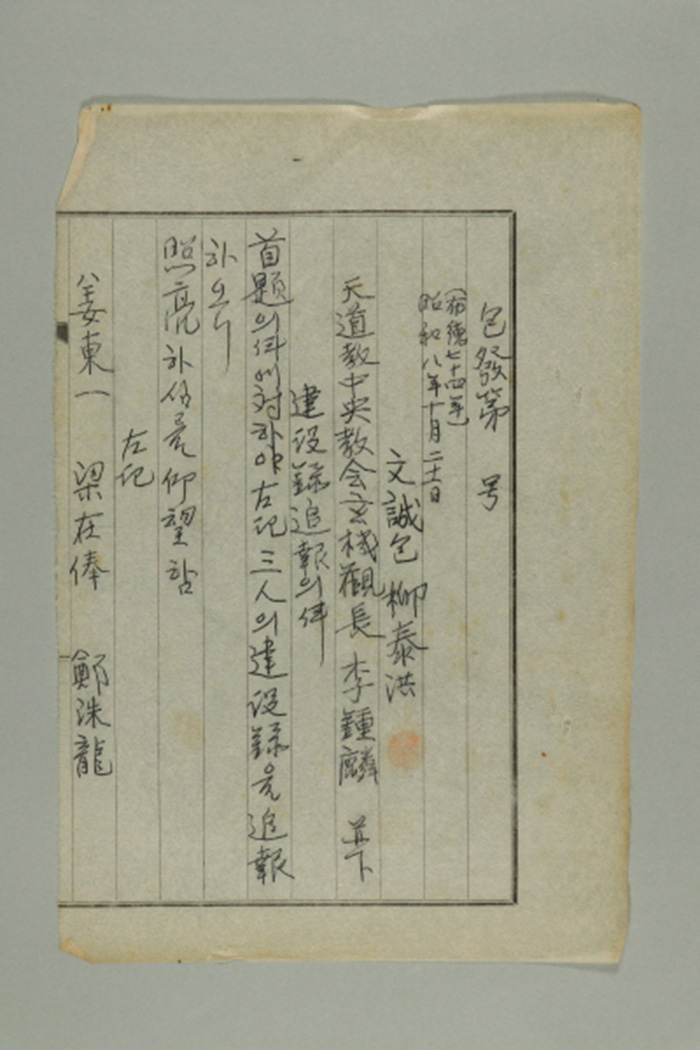 包發第 号
(布德七十四年)
昭和八年十月二十一日
文誠包 柳泰洪
天道教中央教会玄機觀長 李鍾麟 座下
建設錄追報의件
首題의件에対하야左記三人의建設錄을追報
하오니
照亮하심을仰望함
左記
姜東一 梁在俸 鄭洙龍